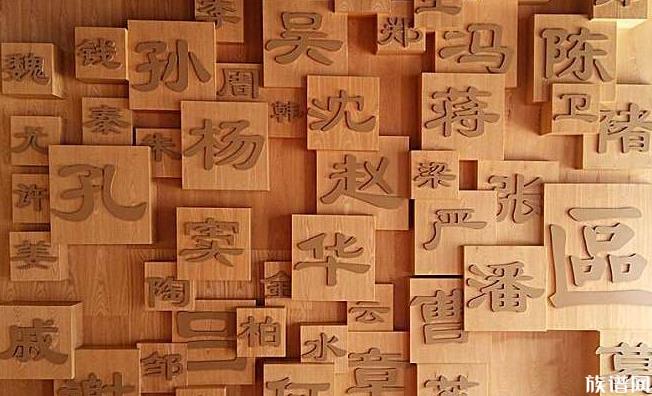 郑
吴
冯
陈
魏
钱
孙
周
韩
沈
蒋
卫
褚
尤
秦
朱
杨
赵
孔
许
梁
张
严
姜
窦
华
區
陶
金
云
曹
潘
戚
柏
水
邹
谢
何
章
葛
族谱网